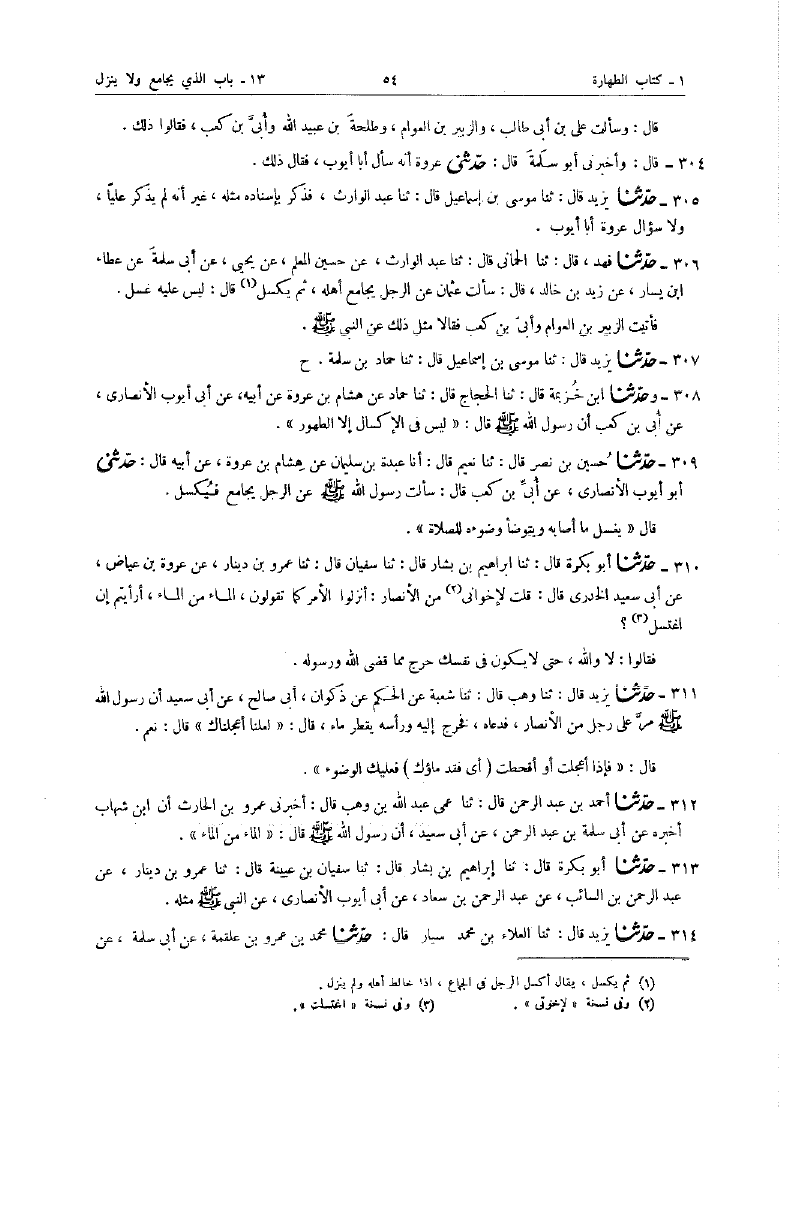 ١ ـ كتاب الطهارة ٥٤ ١٣ ـ باب الذي يجامع ولا ينزل
قال : وسألت على بن أبى طالب ، والزبير بن العوام ، وطلحةَ بن عبيد الله وأبىَّ بن كعب ، فقالوا ذلك .
٣٠٤ ـ قال : وأخبرنى أبو سَلَمةَ قال : حدّثنى عروة أنه سأل أبا أيوب ، فقال ذلك .
٣٠٥ ـ حدّثنا يزيد قال : ثنا موسى بن إسماعيل قال : ثنا عبد الوارث ، فذكر بإسناده مثله ، غير أنه لم يذكر عليًّا ،
ولا سؤال عروة أبا أيوب .
٣٠٦ ـ حدّثنا فهد ، قال : ثنا الحمانى قال : ثنا عبد الوارث ، عن حسين المعلم ، عن يحيى ، عن أبى سلمةَ عن عطاء
ابن يسار ، عن زيد بن خالد ، قال : سألت عثمان عن الرجل يجامع أهله ، ثم يكسل(١) قال : ليس عليه غسل .
فأتيت الزبير بن العوام وأبىّ بن كعب فقالا مثل ذلك عن النبي ﷺ .
٣٠٧ ـ حدّثنا يزيد قال : ثنا موسى بن إسماعيل قال : ثنا حماد بن سلمة . ح
٣٠٨ ـ وحدّثنا ابن خُزيمة قال : ثنا الحجاج قال : ثنا حماد عن هشام بن عروة عن أبيه، عن أبى أيوب الأنصارى ،
عن أُبى بن كعب أن رسول الله ﷺ قال : « ليس فى الإكسال إلا الطهور » .
٣٠٩ ـ حدّثنا حُسين بن نصر قال : ثنا نعيم قال : أنا عبدة بن سليمان عن هِشام بن عروة ، عن أبيه قال : حدّثنى
أبو أيوب الأنصارى ، عن أُبىِّ بن كعب قال : سألت رسول الله ﷺ عن الرجل يجامع فيُكسل .
قال « يغسل ما أصابه ويتوضأ وضوءه للصلاة » .
٣١٠ ـ حدّثنا أبو بكرة قال : ثنا ابراهيم بن بشار قال : ثنا سفيان قال : ثنا عمرو بن دينار ، عن عروة بن عياض ،
عن أبى سعيد الخدرى قال : قلت لإخوانى(٢) من الأنصار : أنزلوا الأمر كما تقولون ، الماء من الماء ، أرأيتم إن
اغتسل(٣) ؟
فقالوا : لا والله ، حتى لا يكون فى نفسك حرج مما قضى الله ورسوله .
٣١١ ـ حدّثنا يزيد قال : ثنا وهب قال : ثنا شعبة عن الحكم عن ذكوان ، أبى صالح ، عن أبى سعيد أن رسول الله
ﷺ مرَّ على رجل من الأنصار ، فدعاه ، فخرج إليه ورأسه يقطر ماء ، قال : « لعلنا أعجلناك » قال : نعم .
قال : « فإذا أعجلت أو أقحطت ( أى فقد ماؤك ) فعليك الوضوء » .
٣١٢ ـ حدّثنا أحمد بن عبد الرحمن قال : ثنا عمى عبد الله بن وهب قال : أخبرنى عمرو بن الحارث أن ابن شهاب
أخبره عن أبى سلمة بن عبد الرحمن ، عن أبى سعيد ، أن رسول الله ﷺ قال : « الماء من الماء » .
٣١٣ ـ حدّثنا أبو بكرة قال : ثنا إبراهيم بن بشار قال : ثنا سفيان بن عيينة قال : ثنا عمرو بن دينار ، عن
عبد الرحمن بن السائب ، عن عبد الرحمن بن سعاد ، عن أبى أيوب الأنصارى ، عن النبي ﷺ مثله .
٣١٤ ـ حدّثنا يزيد قال : ثنا العلاء بن محمد سيار قال : حدّثنا محمد بن عمرو بن علقمة ، عن أبى سلمة ، عن
(١) ثم يكسل ، يقال أكسل الرجل فى الجماع ، اذا خالط أهله ولم ينزل .
(٢) وفى نسخة « لإخوتى » . (٣) وفى نسخة « اغتسلت » .